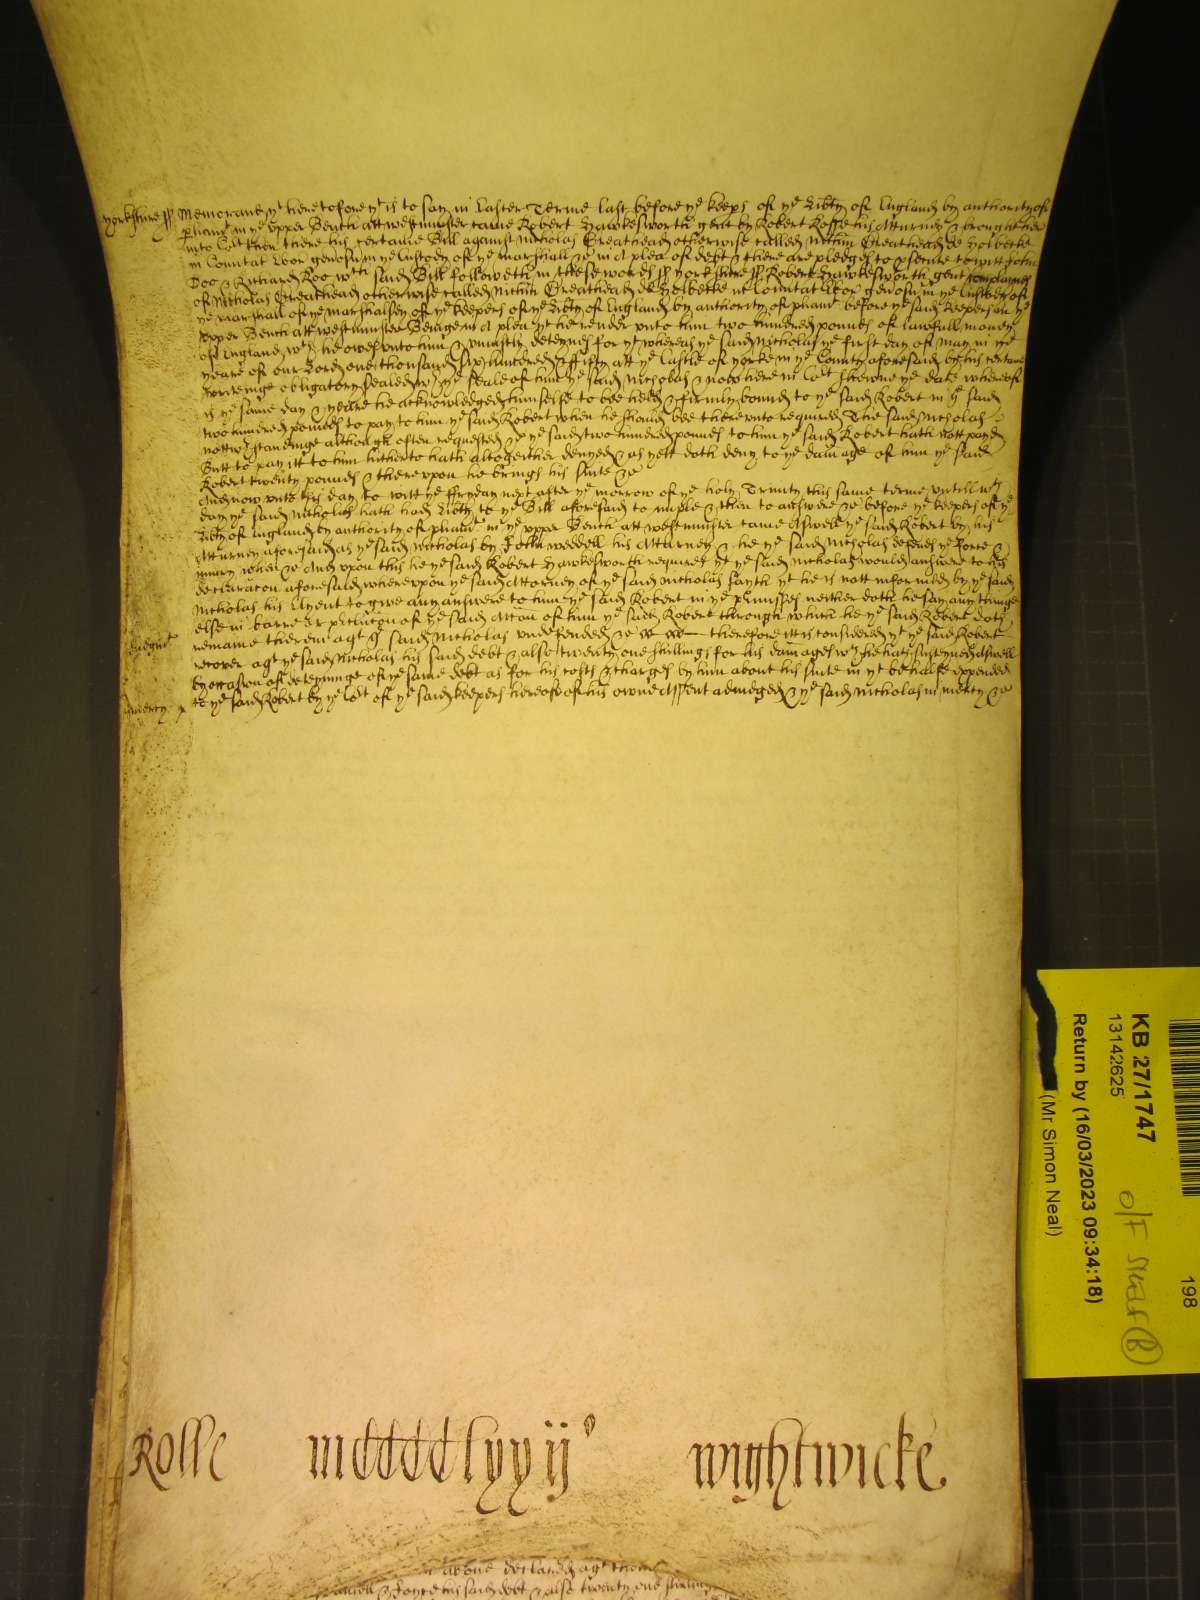 Yorkshire ss Memorand yt heretofore yt is to say in Easter Terme last before ye keeps of ye Libty of England by authority of
pliamt in ye upper Bench att westminster came Robert Hawkesworth gent by Robert Rosse his Atturney & brought here
into Co'rt then there his certaine Bill against Nicholas Greathead otherwise called Nichm Greathead de Holbecke
in Comitat Ebor genosm in ye Custody of ye marshall &c in a plea of debt & there are pledges to psecute to witt John
Doe & Richard Roo wch said Bill followeth in these words ss yorkshire ss Robert Hawkesworth gent complaines
of Nicholas Greathead otherwise called Nichm Greathead de Holbecke in Comitat Ebor genosm in ye Custody of
ye marshall of ye marshalsey of ye keepers of ye Libty of England by authority of pliamt before ye said keepers in ye
upper Bench att westminster Beinge in a plea yt he render unto him two hundred pounds of lawfull money
of England wch he owes unto him & uniustly deteynes for yt whereas ye said Nicholas ye first day of may in ye
yeare of our Lord one thousand six hundred & fifty att ye Castle of yorke in ye County aforesaid by his certaine
writeinge obligatory sealed wth ye seale of him ye said Nicholas & now here in Co'rt shewne ye date whereof
is ye same day & yeare he acknowledged himselfe to bee held & firmly bound to ye said Robert in ye said
two hundred pounds to pay to him ye said Robert when he should bee thereunto required The said Nicholas
nottwthstandinge although often requested &c ye said two hundred pounds to him ye said Robert hath nott payd
Butt to pay itt to him hitherto hath altogether denyed & as yett doth deny to ye damage of him ye said
Robert twenty pounds & thereupon he brings his suite &c
And now unto this day to witt ye ffryday next after ye morrow of ye holy Trinity this same terme untill wch
day ye said Nicholas hath had Libty to ye Bill aforesaid to imple & then to answere &c before ye keepers of ye
Libty of England by authority of pliamt in ye upper Bench att westminster came Aswell ye said Robert by his
Atturney aforesaid as ye said Nicholas by John weddell his Atturney & he ye said Nicholas defends ye force &
iniury when &c And upon this he ye said Robert Hawkesworth requires yt ye said Nicholas would answere to his
declaracon aforesaid whereupon ye said Attorney of ye said Nicholas sayth yt he is nott informed by ye said
Nicholas his Clyent to give any answere to him ye said Robert in ye pmisses neither doth he say any thinge
else in barre or pclucon of ye said Accon of him ye said Robert through which he ye said Robert doth
Judgmt remaine therein agt ye said Nicholas undefended &c therefore itt is considered yt ye said Robert
recover agt ye said Nicholas his said debt & also twenty one shillings for his damages wch he hath susteyned Aswell
by occasion of deteyninge of ye same debt as for his costs & charges by him about his suite in yt behalfe expended
mercy to ye said Robert by ye Co'rt of ye said keepers hereof of his owne Assent adiudged & ye said Nicholas in mercy &c
Rolle mcccclxxijo wightwicke
above declared agt them
& Joyce his said debt & also twenty one shillings
KB 27/1747
13142625
Return by (16/03/2023 09:34:18)
(Mr Simon Neal)
198